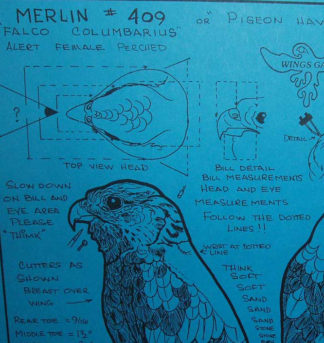 MERLIN # 409 or "PIGEON HAW
"FALCO COLUMBARIUS"
ALERT FEMALE PERCHED
WINGS GA
?
DETAIL
TOP VIEW HEAD
BILL DETAIL
BILL MEASUREMENTS
HEAD AND EYE
MEASUREMENTS
FOLLOW THE DOTTED
LINES!!
SLOW DOWN
ON BILL AND
EYE AREA
PLEASE
"THINK"
AT DOTTED
LINE
CUTTERS AS
SHOWN
BREAST OVER
WING
THINK
SOFT
SOFT
SAND
SAND
SAND
STONE
REAR TOE = 9/16
MIDDLE TOE =